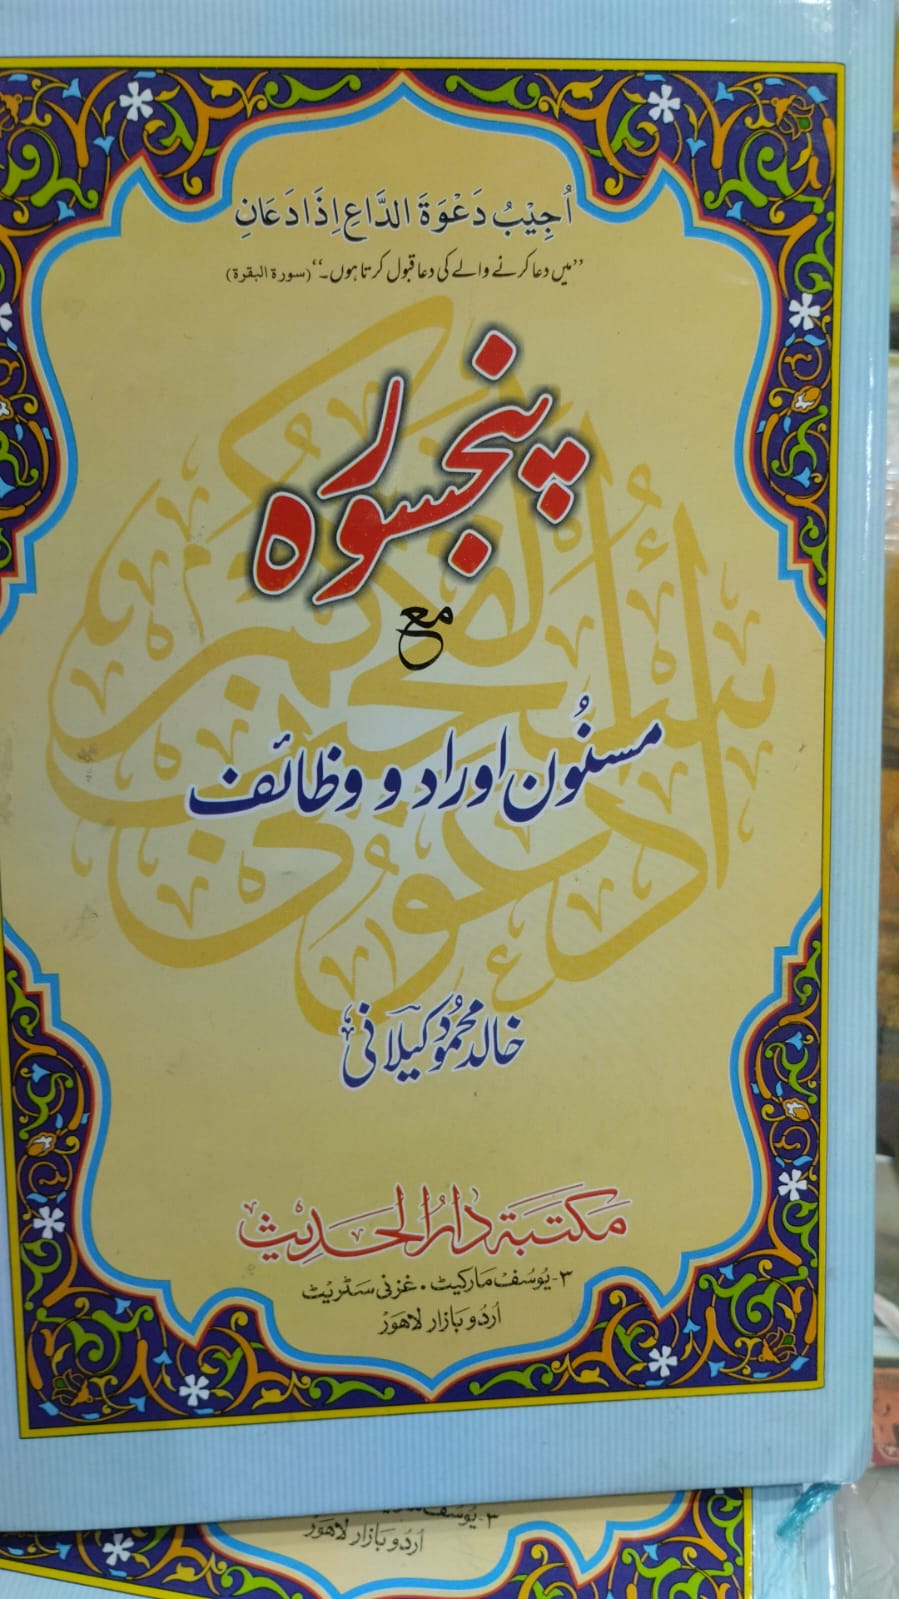 اُجِيْبُ دَعْوَةَ الدَّاعِ اِذَا دَعَانِ
”میں دعا کرنے والے کی دعا قبول کرتا ہوں۔“ (سورۃ البقرۃ)
پنجسورہ
مع
مسنُون اوراد و وظائف
خالد محمُود کیلانی
مکتبۃ دارُ الحدیث
۳- یُوسُف مارکیٹ • غزنی سٹریٹ
اُردُو بازار لاہَور
۳- یُوسُف
اُردُو بازار لاہَور